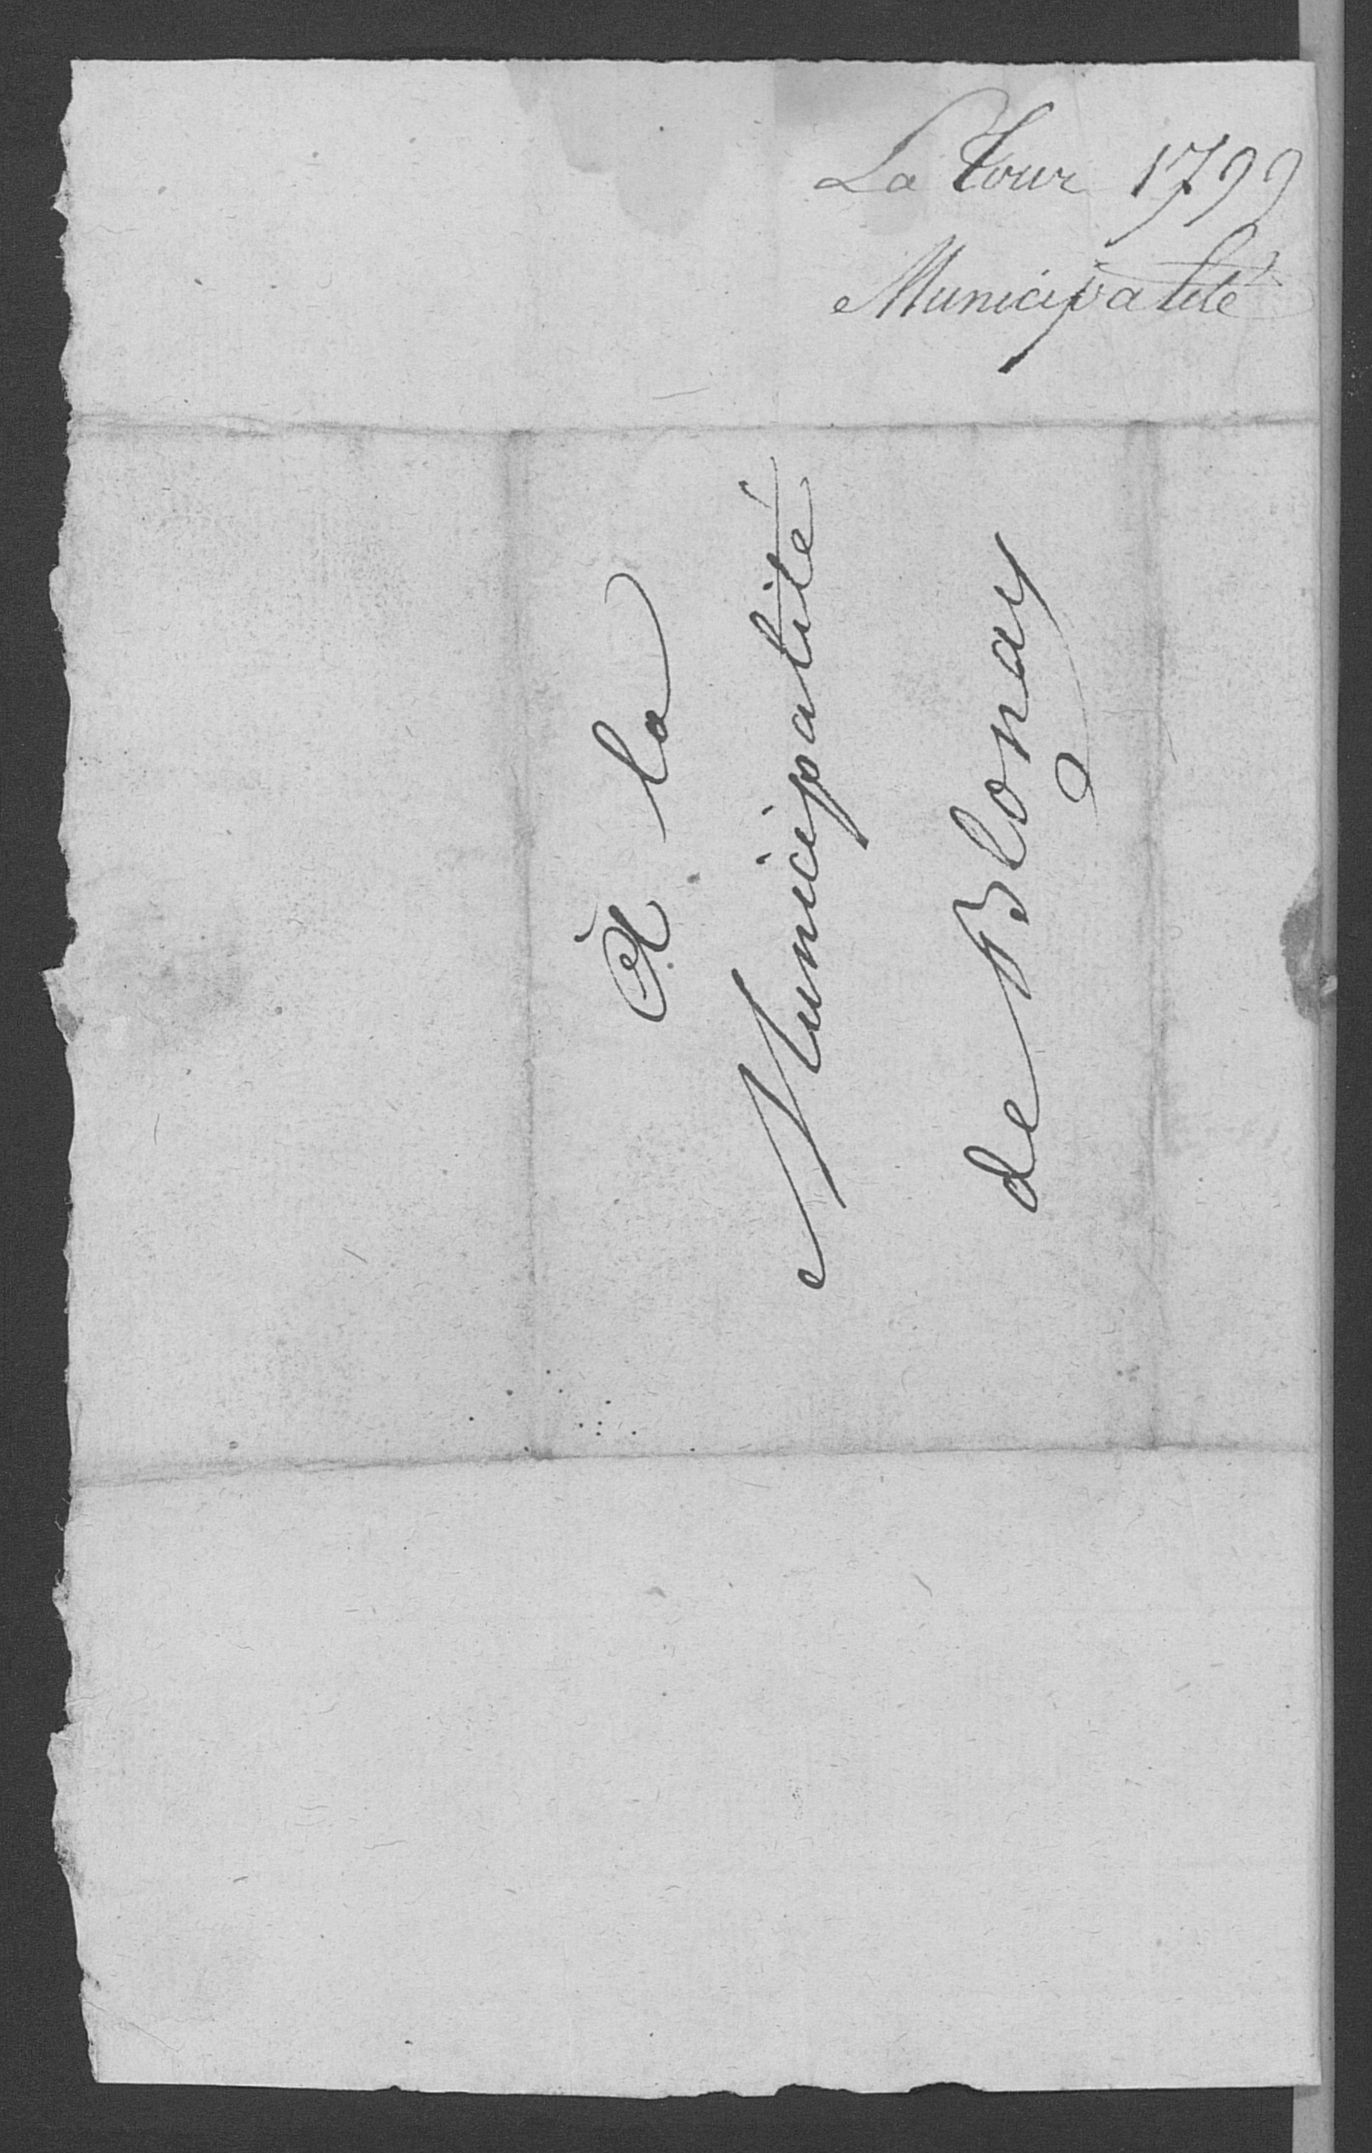 La Tour 1799
Municipalité
À la
Municipalité
de Blonay